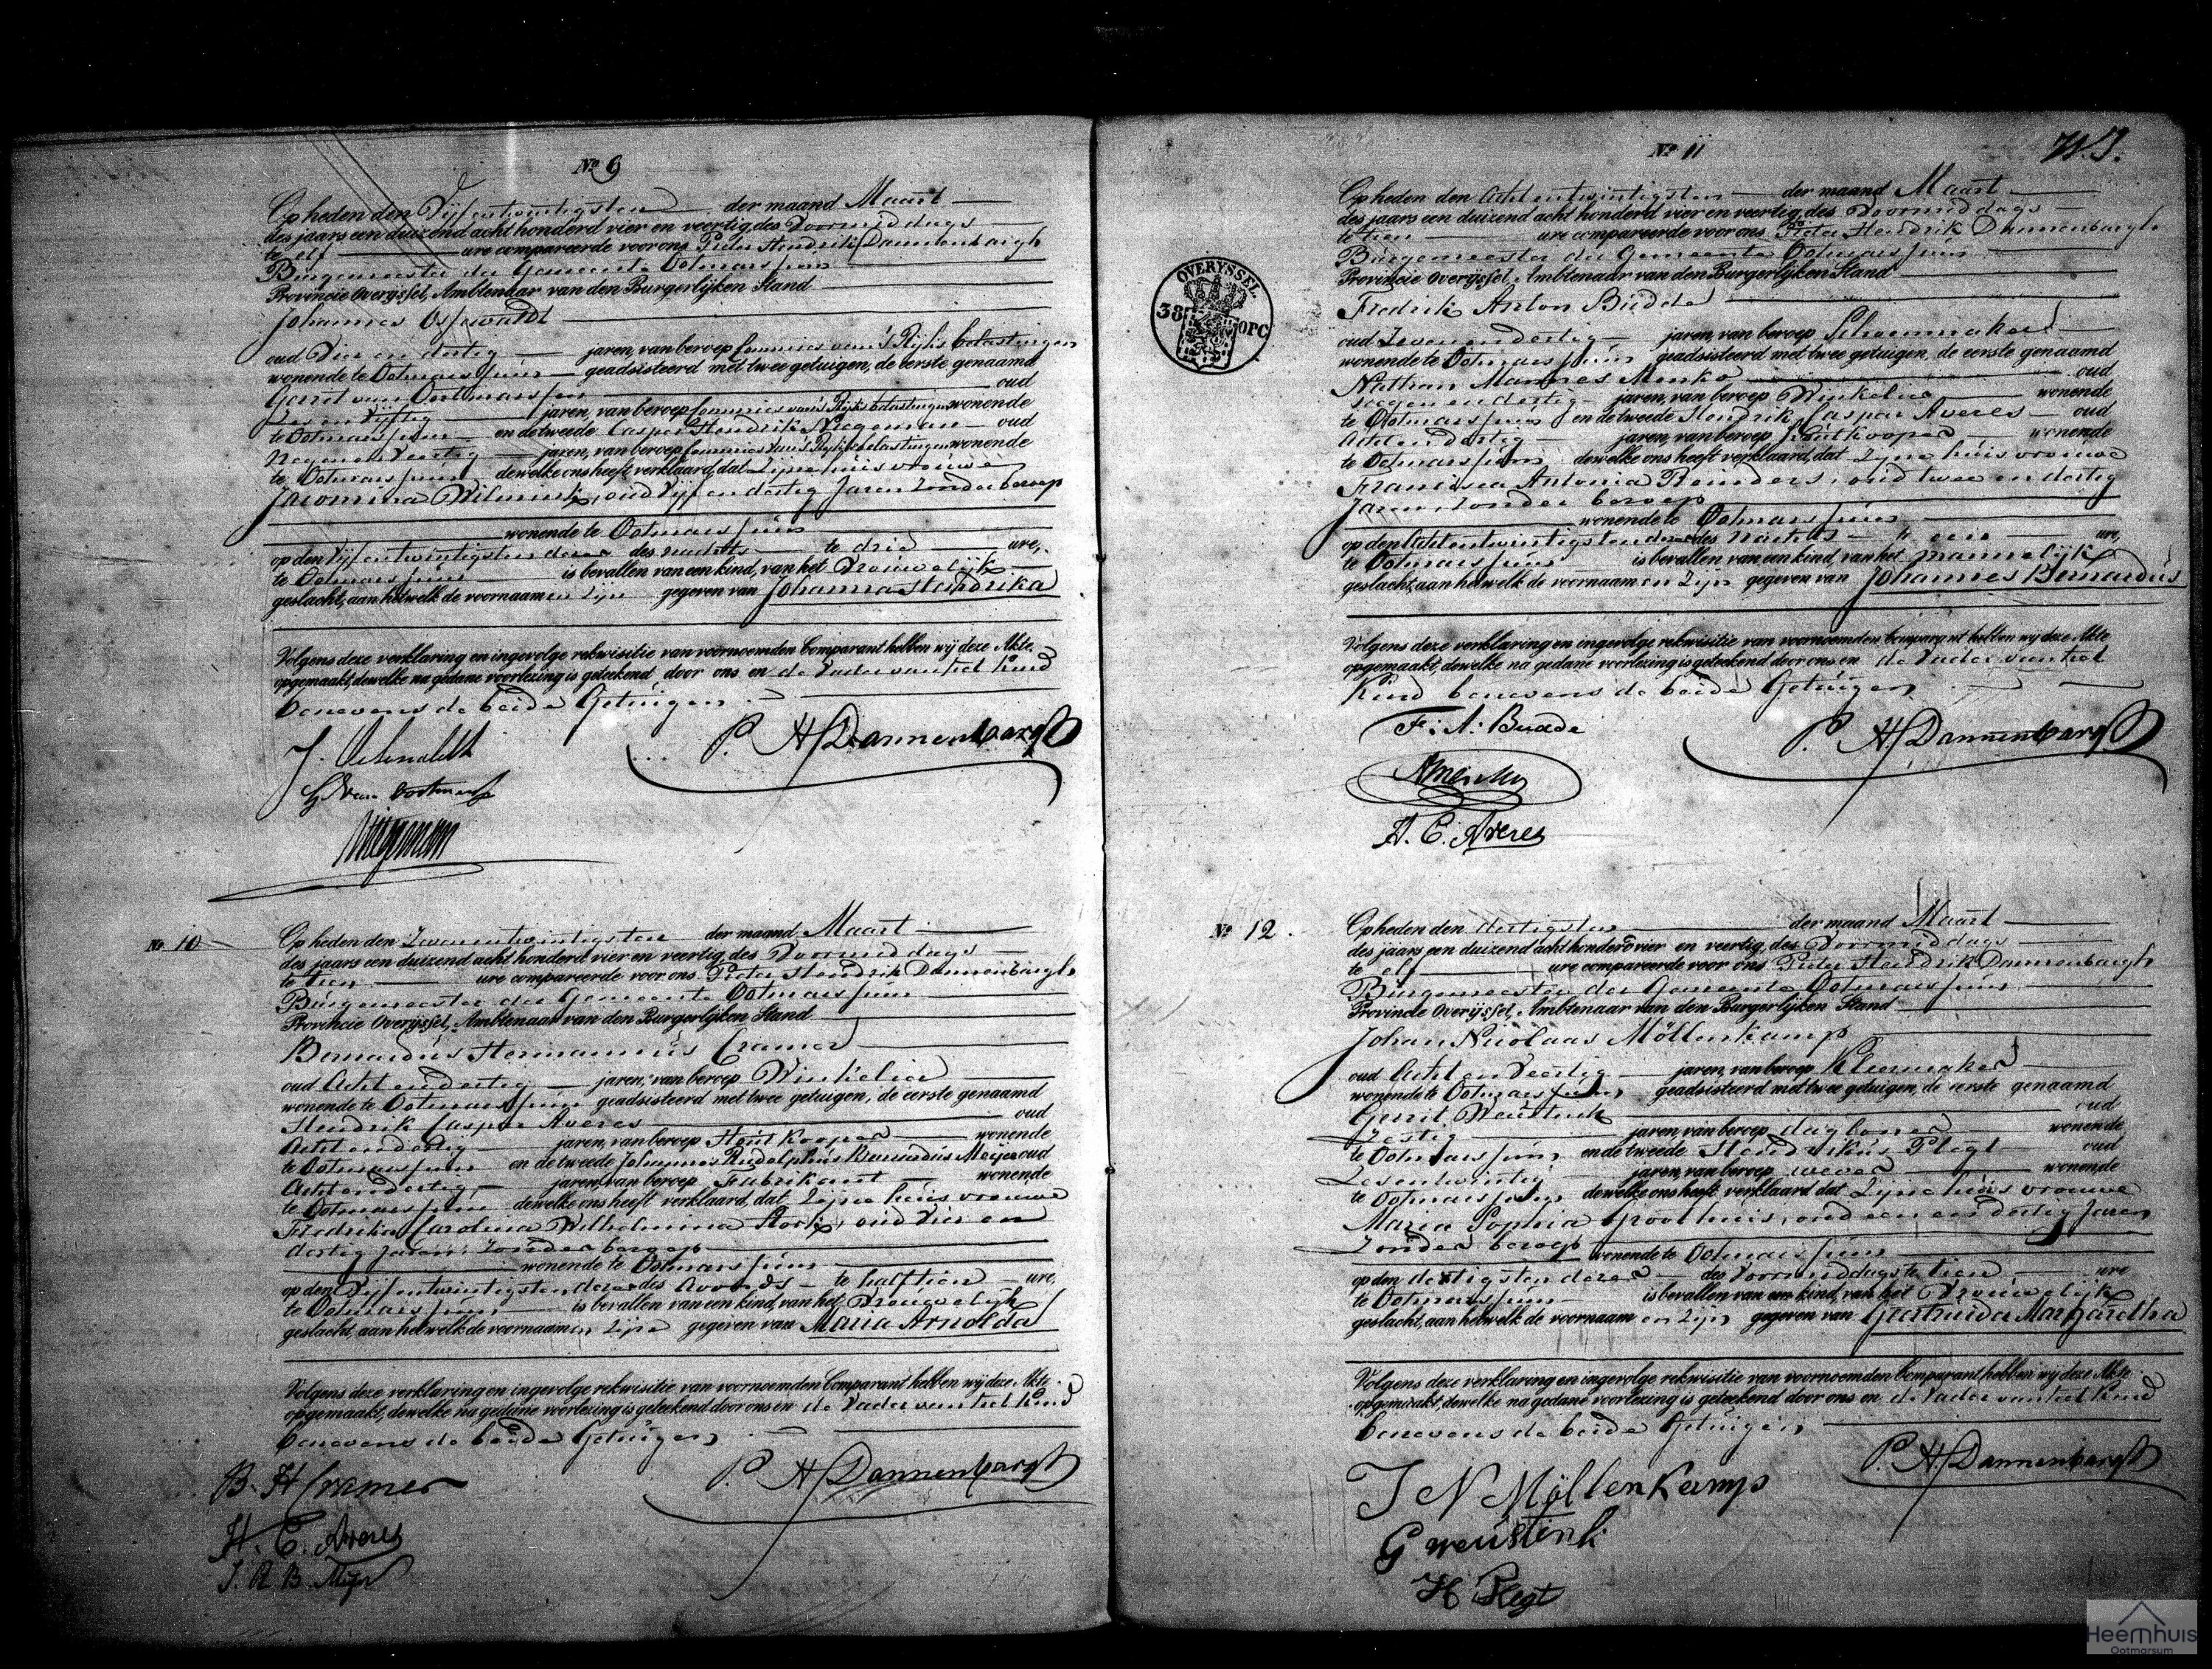 No 9
Op heden den Vijfentwintigsten der maand Maart
des jaars een duizend acht honderd vier en veertig, des Voormiddags
te elf ure compareerde voor ons Pieter Hendrik Dannenbargh
Burgemeester der Gemeente Ootmarssum
Provincie Overijssel, Ambtenaar van den Burgerlijken Stand
Johannes
oud Vier en dertig jaren, van beroep Commies van 's Rijks belastingen
wonende te Ootmarssum geadsisteerd met twee getuigen, de eerste genaamd
Gerret van Oortmarssen oud
Zes en Vijftig jaren, van beroep Commies van 's Rijks belastingen wonende
te Ootmarssum en de tweede Casper Hendrik Niegeman oud
Negen en Veertig jaren, van beroep Commies van 's Rijks belastingen wonende
te Ootmarssum dewelke ons heeft verklaard, dat Zijne huisvrouwe
Jacomina Wilmink, oud Vijf en dertig Jaren Zonder beroep
wonende te Ootmarssum
op den Vijfentwintigsten dezer des nachts te drie ure,
te Ootmarssum is bevallen van een kind, van het Vrouwelijk
geslacht, aan hetwelk de voornaamen Zijn gegeven van Johanna Hendrika
Volgens deze verklaring en ingevolge rekwisitie van voornoemden Comparant hebben wij deze Akte
opgemaakt, dewelke na gedane voorlezing is geteekend door ons en de Vader van het Kind
benevens de beide Getuigen
P. H. Dannenbargh
No 10
Op heden den Zevenentwintigsten der maand Maart
des jaars een duizend acht honderd vier en veertig, des Voormiddags
te tien ure compareerde voor ons Pieter Hendrik Dannenbargh
Burgemeester der Gemeente Ootmarssum
Provincie Overijssel, Ambtenaar van den Burgerlijken Stand
Bernardus Hermannus Cramer
oud Acht en dertig jaren, van beroep Winkelier
wonende te Ootmarssum geadsisteerd met twee getuigen, de eerste genaamd
Hendrik Casper Averes oud
Acht en dertig jaren, van beroep Houtkooper wonende
te Ootmarssum en de tweede Johannes Rudolphus Bernardus Meyer oud
Acht en dertig jaren, van beroep Fabrikant wonende
te Ootmarssum dewelke ons heeft verklaard, dat Zijne huisvrouwe
Fredrika Carolina Wilhelmina Stork, oud Vier en
dertig Jaren, Zonder beroep
wonende te Ootmarssum
op den Vijfentwintigsten dezer des Avonds te half tien ure,
te Ootmarssum is bevallen van een kind, van het Vrouwelijk
geslacht, aan hetwelk de voornaamen Zijn gegeven van Maria Arnolda
Volgens deze verklaring en ingevolge rekwisitie van voornoemden Comparant hebben wij deze Akte
opgemaakt, dewelke na gedane voorlezing is geteekend door ons en de Vader van het Kind
benevens de beide Getuigen
P. H. Dannenbargh
B. H Cramer
H. C. Averes
J. R B. Meyer
No 11
OVERYSSEL.
38 OPC
Op heden den Achtentwintigsten der maand Maart
des jaars een duizend acht honderd vier en veertig, des Voormiddags
te tien ure compareerde voor ons Pieter Hendrik Dannenbargh
Burgemeester der Gemeente Ootmarssum
Provincie Overijssel, Ambtenaar van den Burgerlijken Stand
Fredrik Anton Budde
oud Zevenendertig jaren, van beroep Schoenmaker
wonende te Ootmarssum geadsisteerd met twee getuigen, de eerste genaamd
Nathan Mannes Menko oud
negen en dertig jaren, van beroep Winkelier wonende
te Ootmarssum en de tweede Hendrik Caspar Averes oud
Acht en dertig jaren, van beroep Houtkooper wonende
te Ootmarssum dewelke ons heeft verklaard, dat Zijne huisvrouwe
Francisca Antonia Reinders, oud twee en dertig
Jaren, Zonder beroep
wonende te Ootmarssum
op den Achtentwintigsten dezer des nachts te een ure,
te Ootmarssum is bevallen van een kind, van het mannelijk
geslacht, aan hetwelk de voornaamen Zijn gegeven van Johannes Bernardus
Volgens deze verklaring en ingevolge rekwisitie van voornoemden Comparant hebben wij deze Akte
opgemaakt, dewelke na gedane voorlezing is geteekend door ons en de Vader van het
Kind benevens de beide Getuigen
F: A: Budde
P. H. Dannenbargh
H. C. Averes
No 12.
Op heden den dertigsten der maand Maart
des jaars een duizend acht honderd vier en veertig, des Voormiddags
te elf ure compareerde voor ons Pieter Hendrik Dannenbargh
Burgemeester der Gemeente Ootmarssum
Provincie Overijssel, Ambtenaar van den Burgerlijken Stand
Johan Nicolaas Möllenkamp
oud Acht en Veertig jaren, van beroep Kleermaker
wonende te Ootmarssum geadsisteerd met twee getuigen, de eerste genaamd
Gerrit Weustink oud
Zestig jaren, van beroep daglooner wonende
te Ootmarssum en de tweede Hendrikus Plegt oud
Zesentwintig jaren, van beroep wever wonende
te Ootmarssum dewelke ons heeft verklaard dat Zijne huisvrouwe
Maria Sophia Groothuis, oud een en dertig Jaren
Zonder beroep wonende te Ootmarssum
op den dertigsten dezer des Voormiddags te tien ure
te Ootmarssum is bevallen van een kind, van het Vrouwelijk
geslacht, aan hetwelk de voornaamen Zijn gegeven van Geertruida Margaretha
Volgens deze verklaring en ingevolge rekwisitie van voornoemden Comparant hebben wij deze Akte
opgemaakt, dewelke na gedane voorlezing is geteekend door ons en de Vader van het Kind
benevens de beide Getuigen
P. H. Dannenbargh
J N Möllenkamp
G weustink
H Plegt
Heemhuis
Ootmarsum